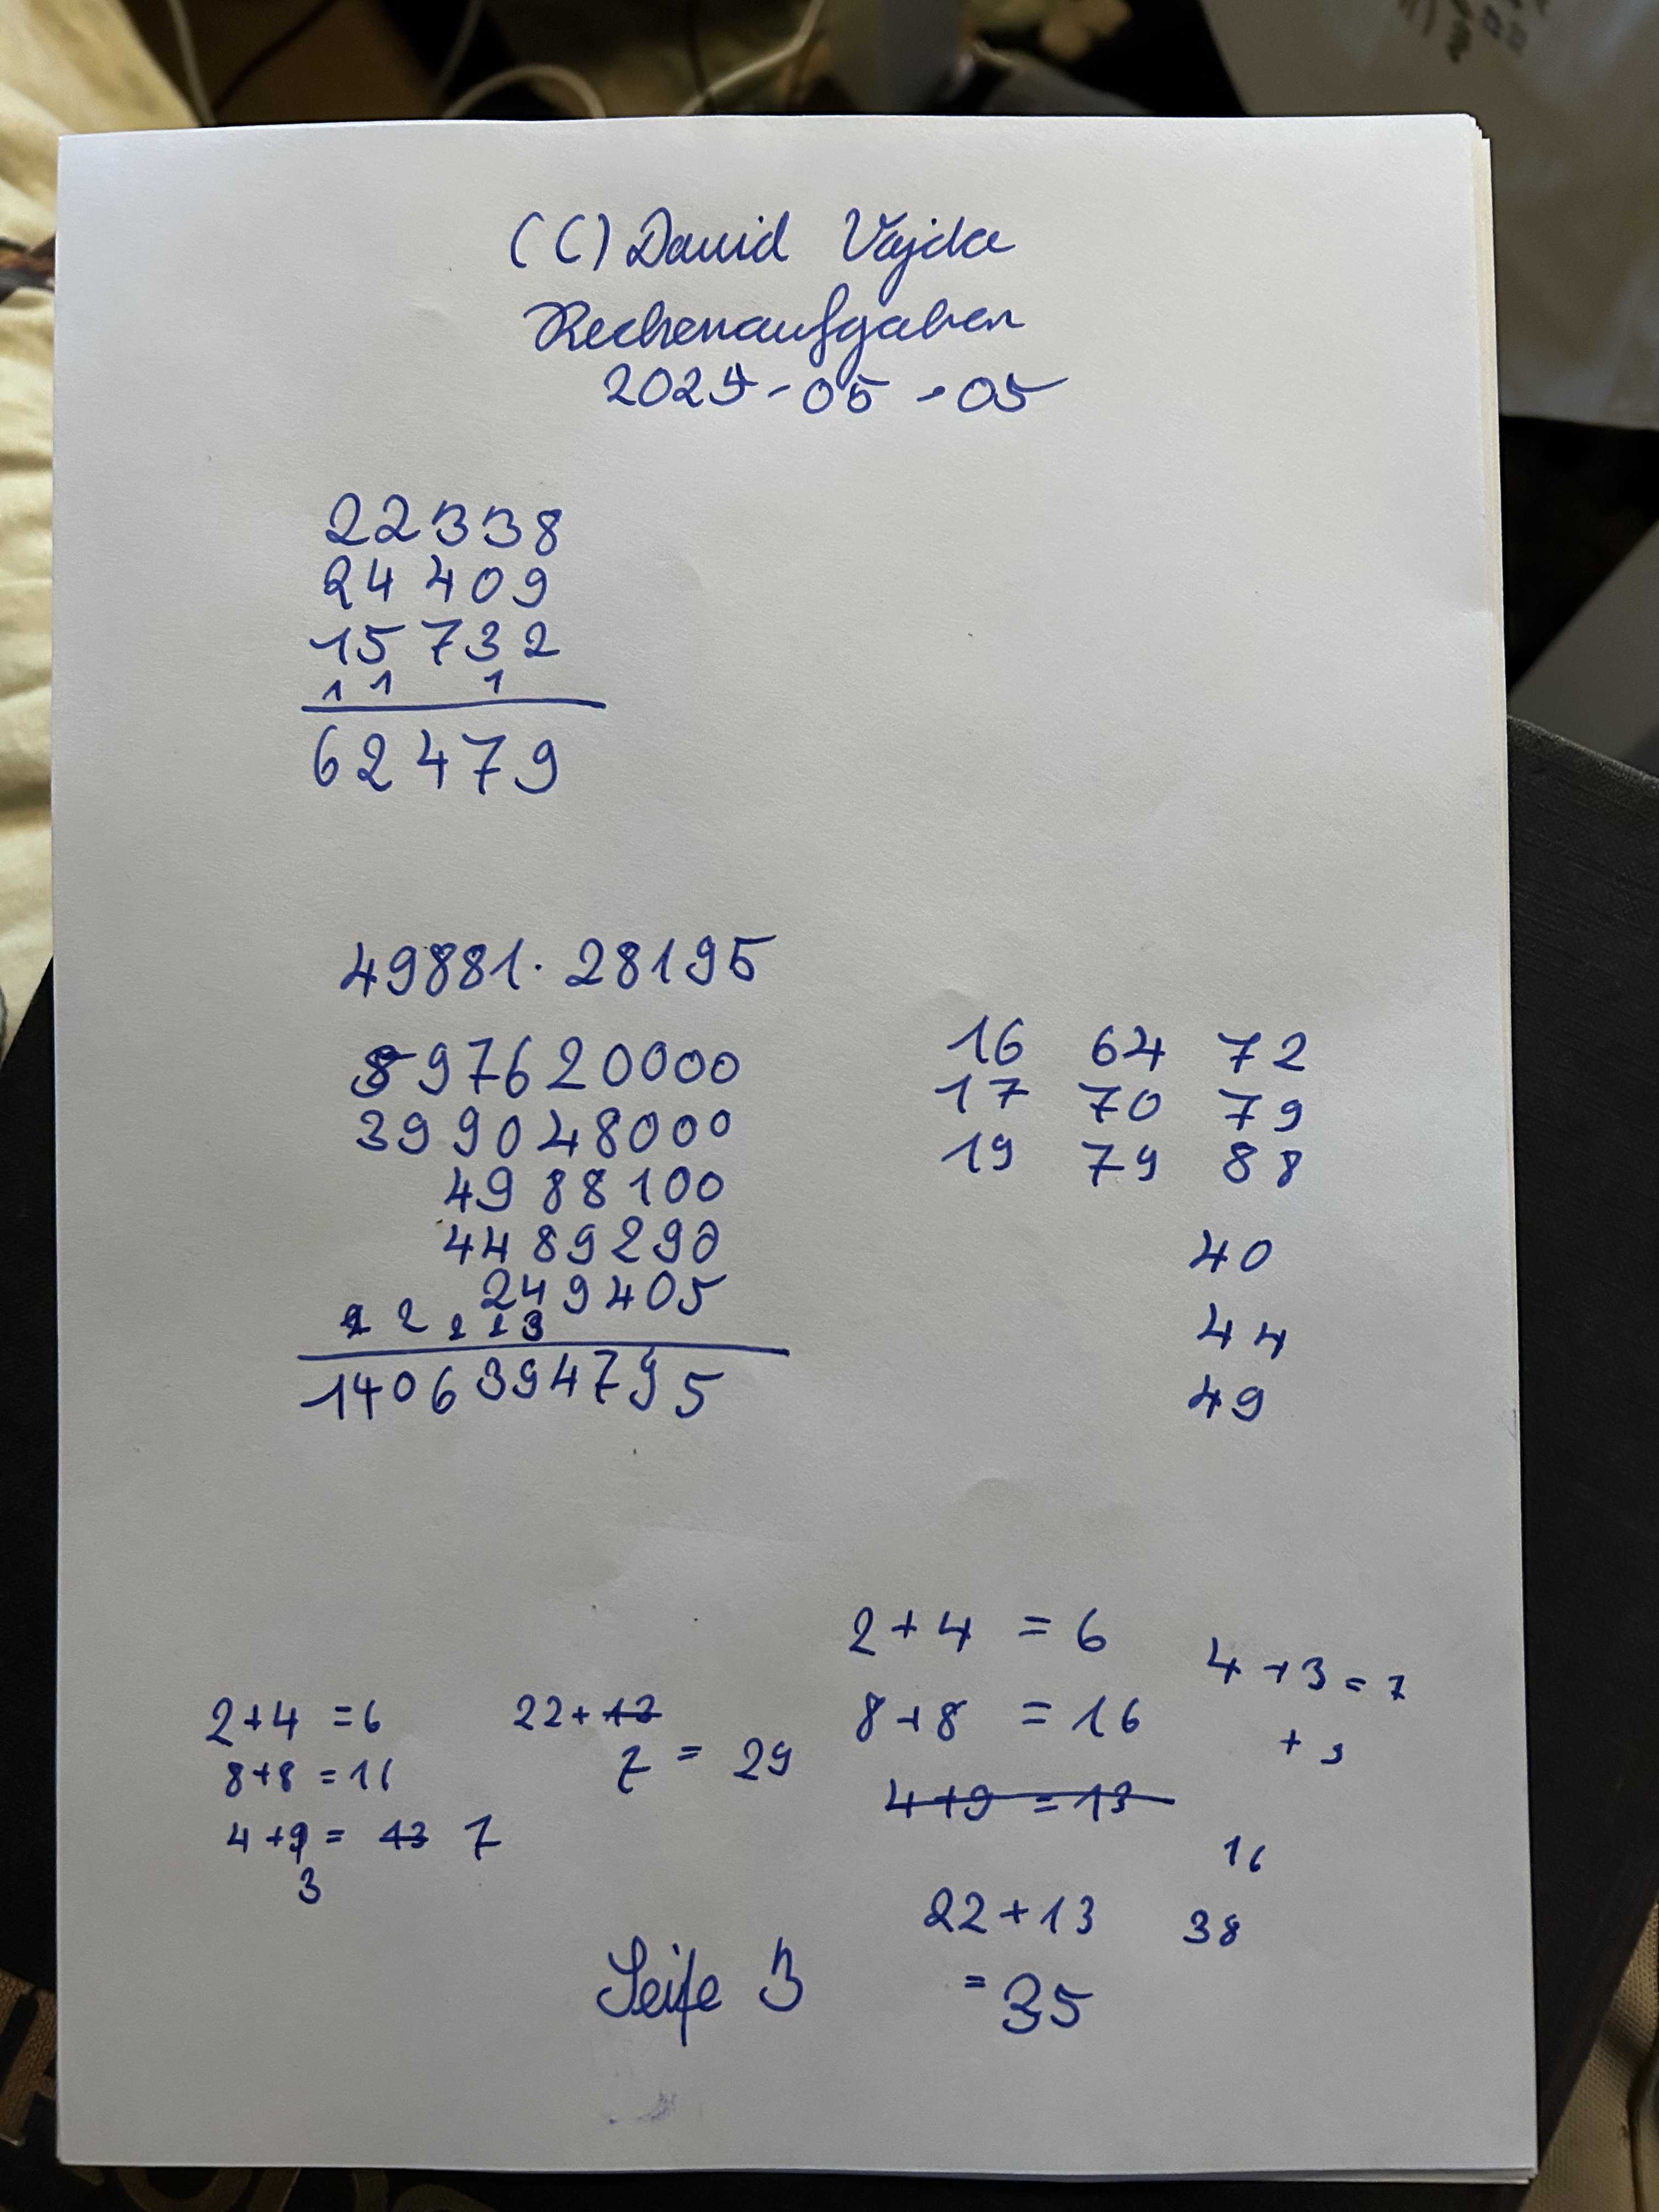 (C) David Vajda
Rechenaufgaben
2025-05-05
22338
24409
15732
11 1
62479
49881 · 28195
997620000
399048000
4988100
4489290
249405
2 2 2 2 3
1406394795
16 64 72
17 70 79
19 79 88
40
44
49
2+4 = 6
8+8 = 16
4+9 = 13 7
3
22+13
7 = 29
2+4 = 6
8+8 = 16
4+9 = 13
22+13
= 35
4+3=7
+9
16
38
Seife 3